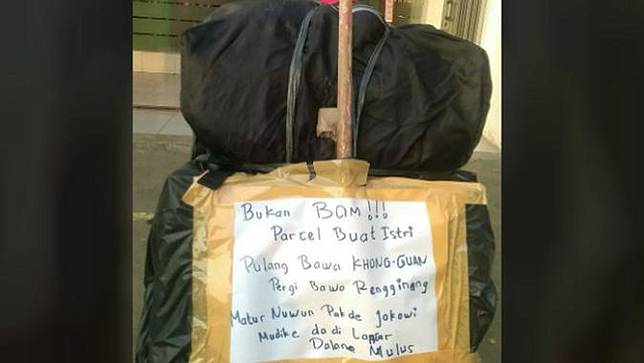 Bukan BOM!!!
Parcel Buat Istri
Pulang Bawa KHONG-GUAN
Pergi Bawa Rengginang
Matur Nuwun Pakde Jokowi
Mudike dadi Lancar
Dalane Mulus